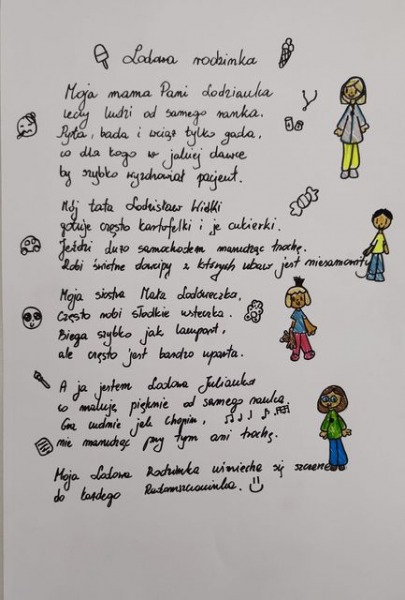 Lodowa rodzinka
Moja mama Pani Lodzianka
leczy ludzi od samego ranka.
Pyta, bada i wciąż tylko gada,
co dla kogo w jakiej dawce
by szybko wyzdrowiał pacjent.
Mój tata Lodzisław Wielki
gotuje często kartofelki i je cukierki.
Jeździ dużo samochodem marudząc trochę.
Robi świetne dowcipy z których ubaw jest niesamowity
Moja siostra Mała Lodóweczka,
Często robi słodkie usteczka.
Biega szybko jak lampart,
ale często jest bardzo uparta.
A ja jestem Lodowa Julianka
co maluję pięknie od samego ranka.
Gra cudnie jak Chopin,
nie marudząc przy tym ani trochę.
Moja Lodowa Rodzinka uśmiecha się szczerze
do każdego